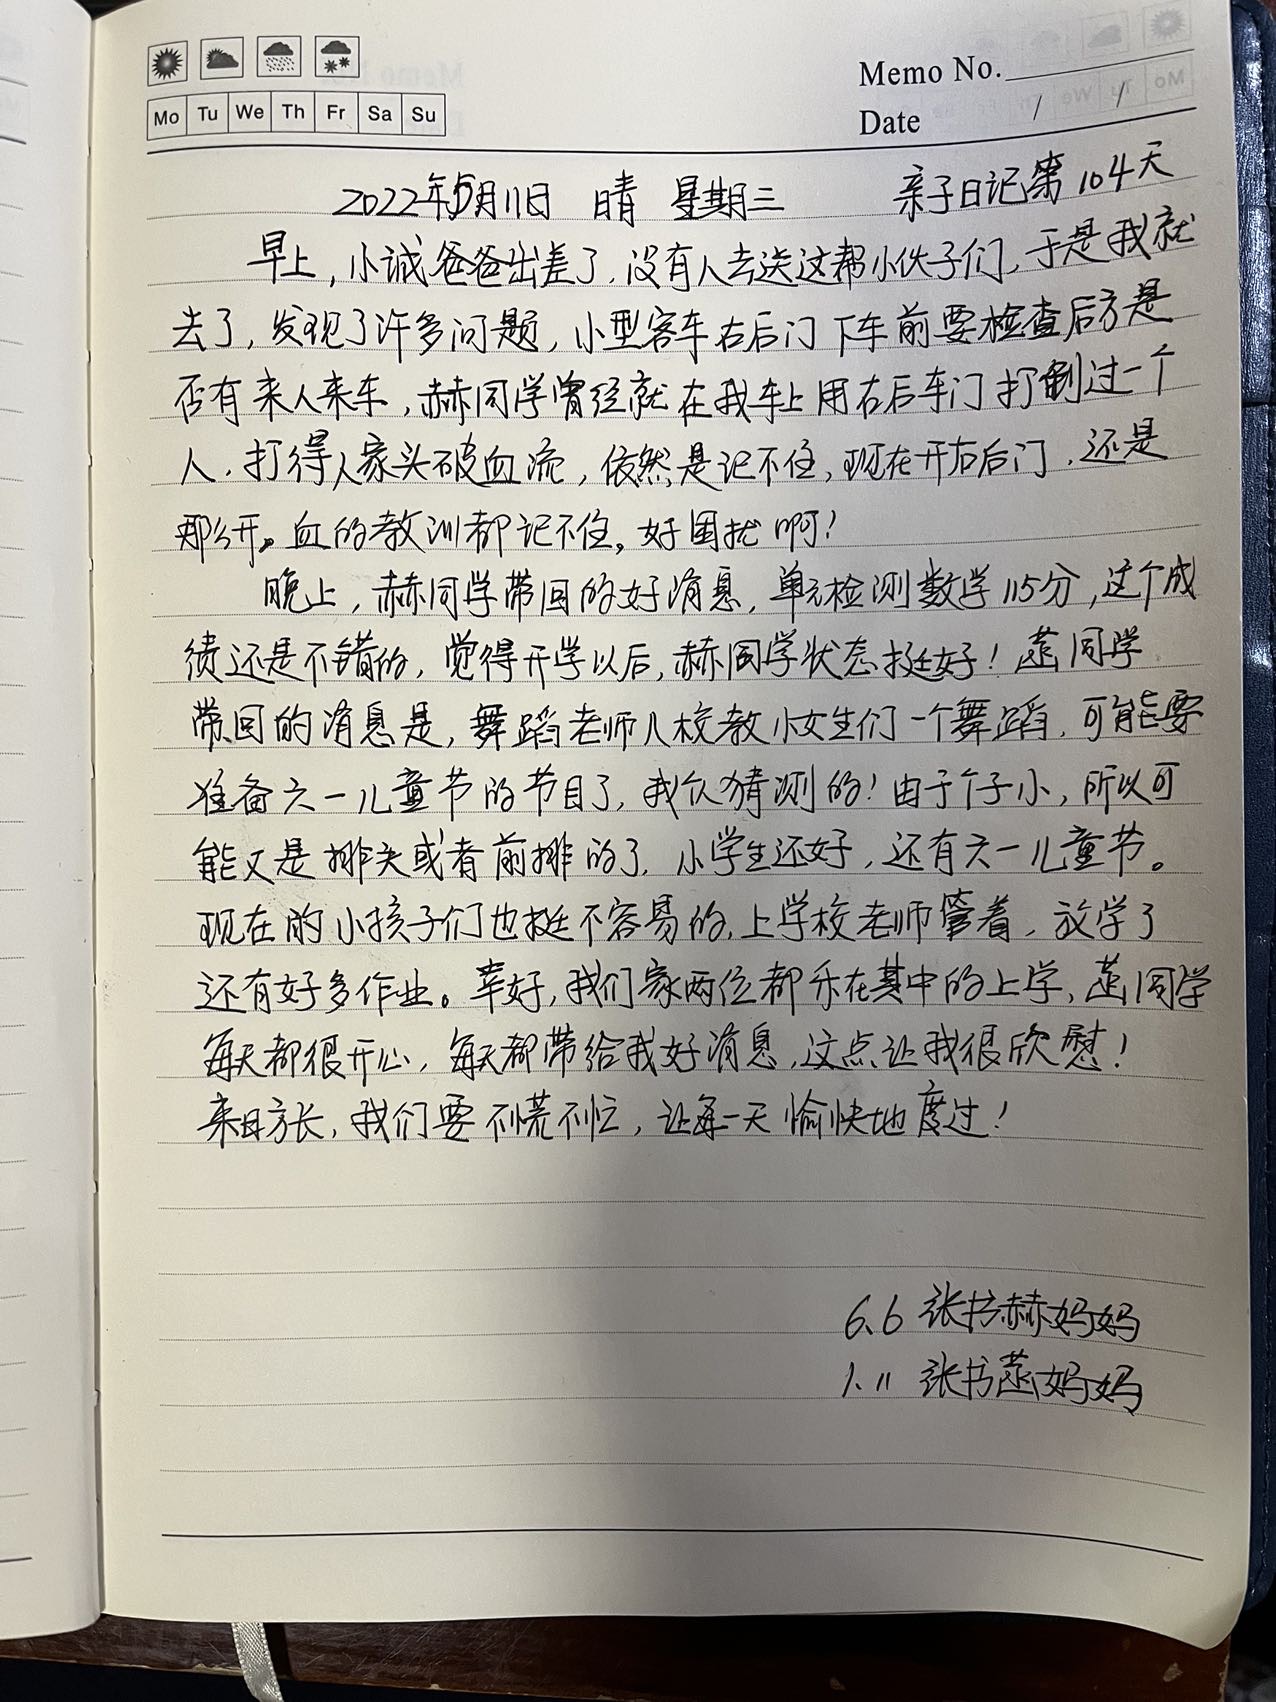 Memo No.
Mo Tu We Th Fr Sa Su
Date / /
2022年5月11日 晴 星期三 亲子日记第104天
早上，小诚爸爸出差了，没有人去送这帮小伙子们，于是我就
去了，发现了许多问题，小型客车右后门下车前要检查后方是
否有来人来车，赫同学曾经就在我车上用右后车门打倒过一个
人，打得人家头破血流，依然是记不住，现在开右后门，还是
那么开。血的教训都记不住，好困扰啊！
晚上，赫同学带回的好消息，单元检测数学115分，这个成
绩还是不错的，觉得开学以后，赫同学状态挺好！菡同学
带回的消息是，舞蹈老师入校教小女生们一个舞蹈，可能要
准备六一儿童节的节目了，我仅猜测的！由于个子小，所以可
能又是排头或者前排的了，小学生还好，还有六一儿童节。
现在的小孩子们也挺不容易的，上学校老师管着，放学了
还有好多作业。幸好，我们家两位都乐在其中的上学，菡同学
每天都很开心，每天都带给我好消息，这点让我很欣慰！
来日方长，我们要不慌不忙，让每一天愉快地度过！
6.6 张书赫妈妈
1.11 张书菡妈妈